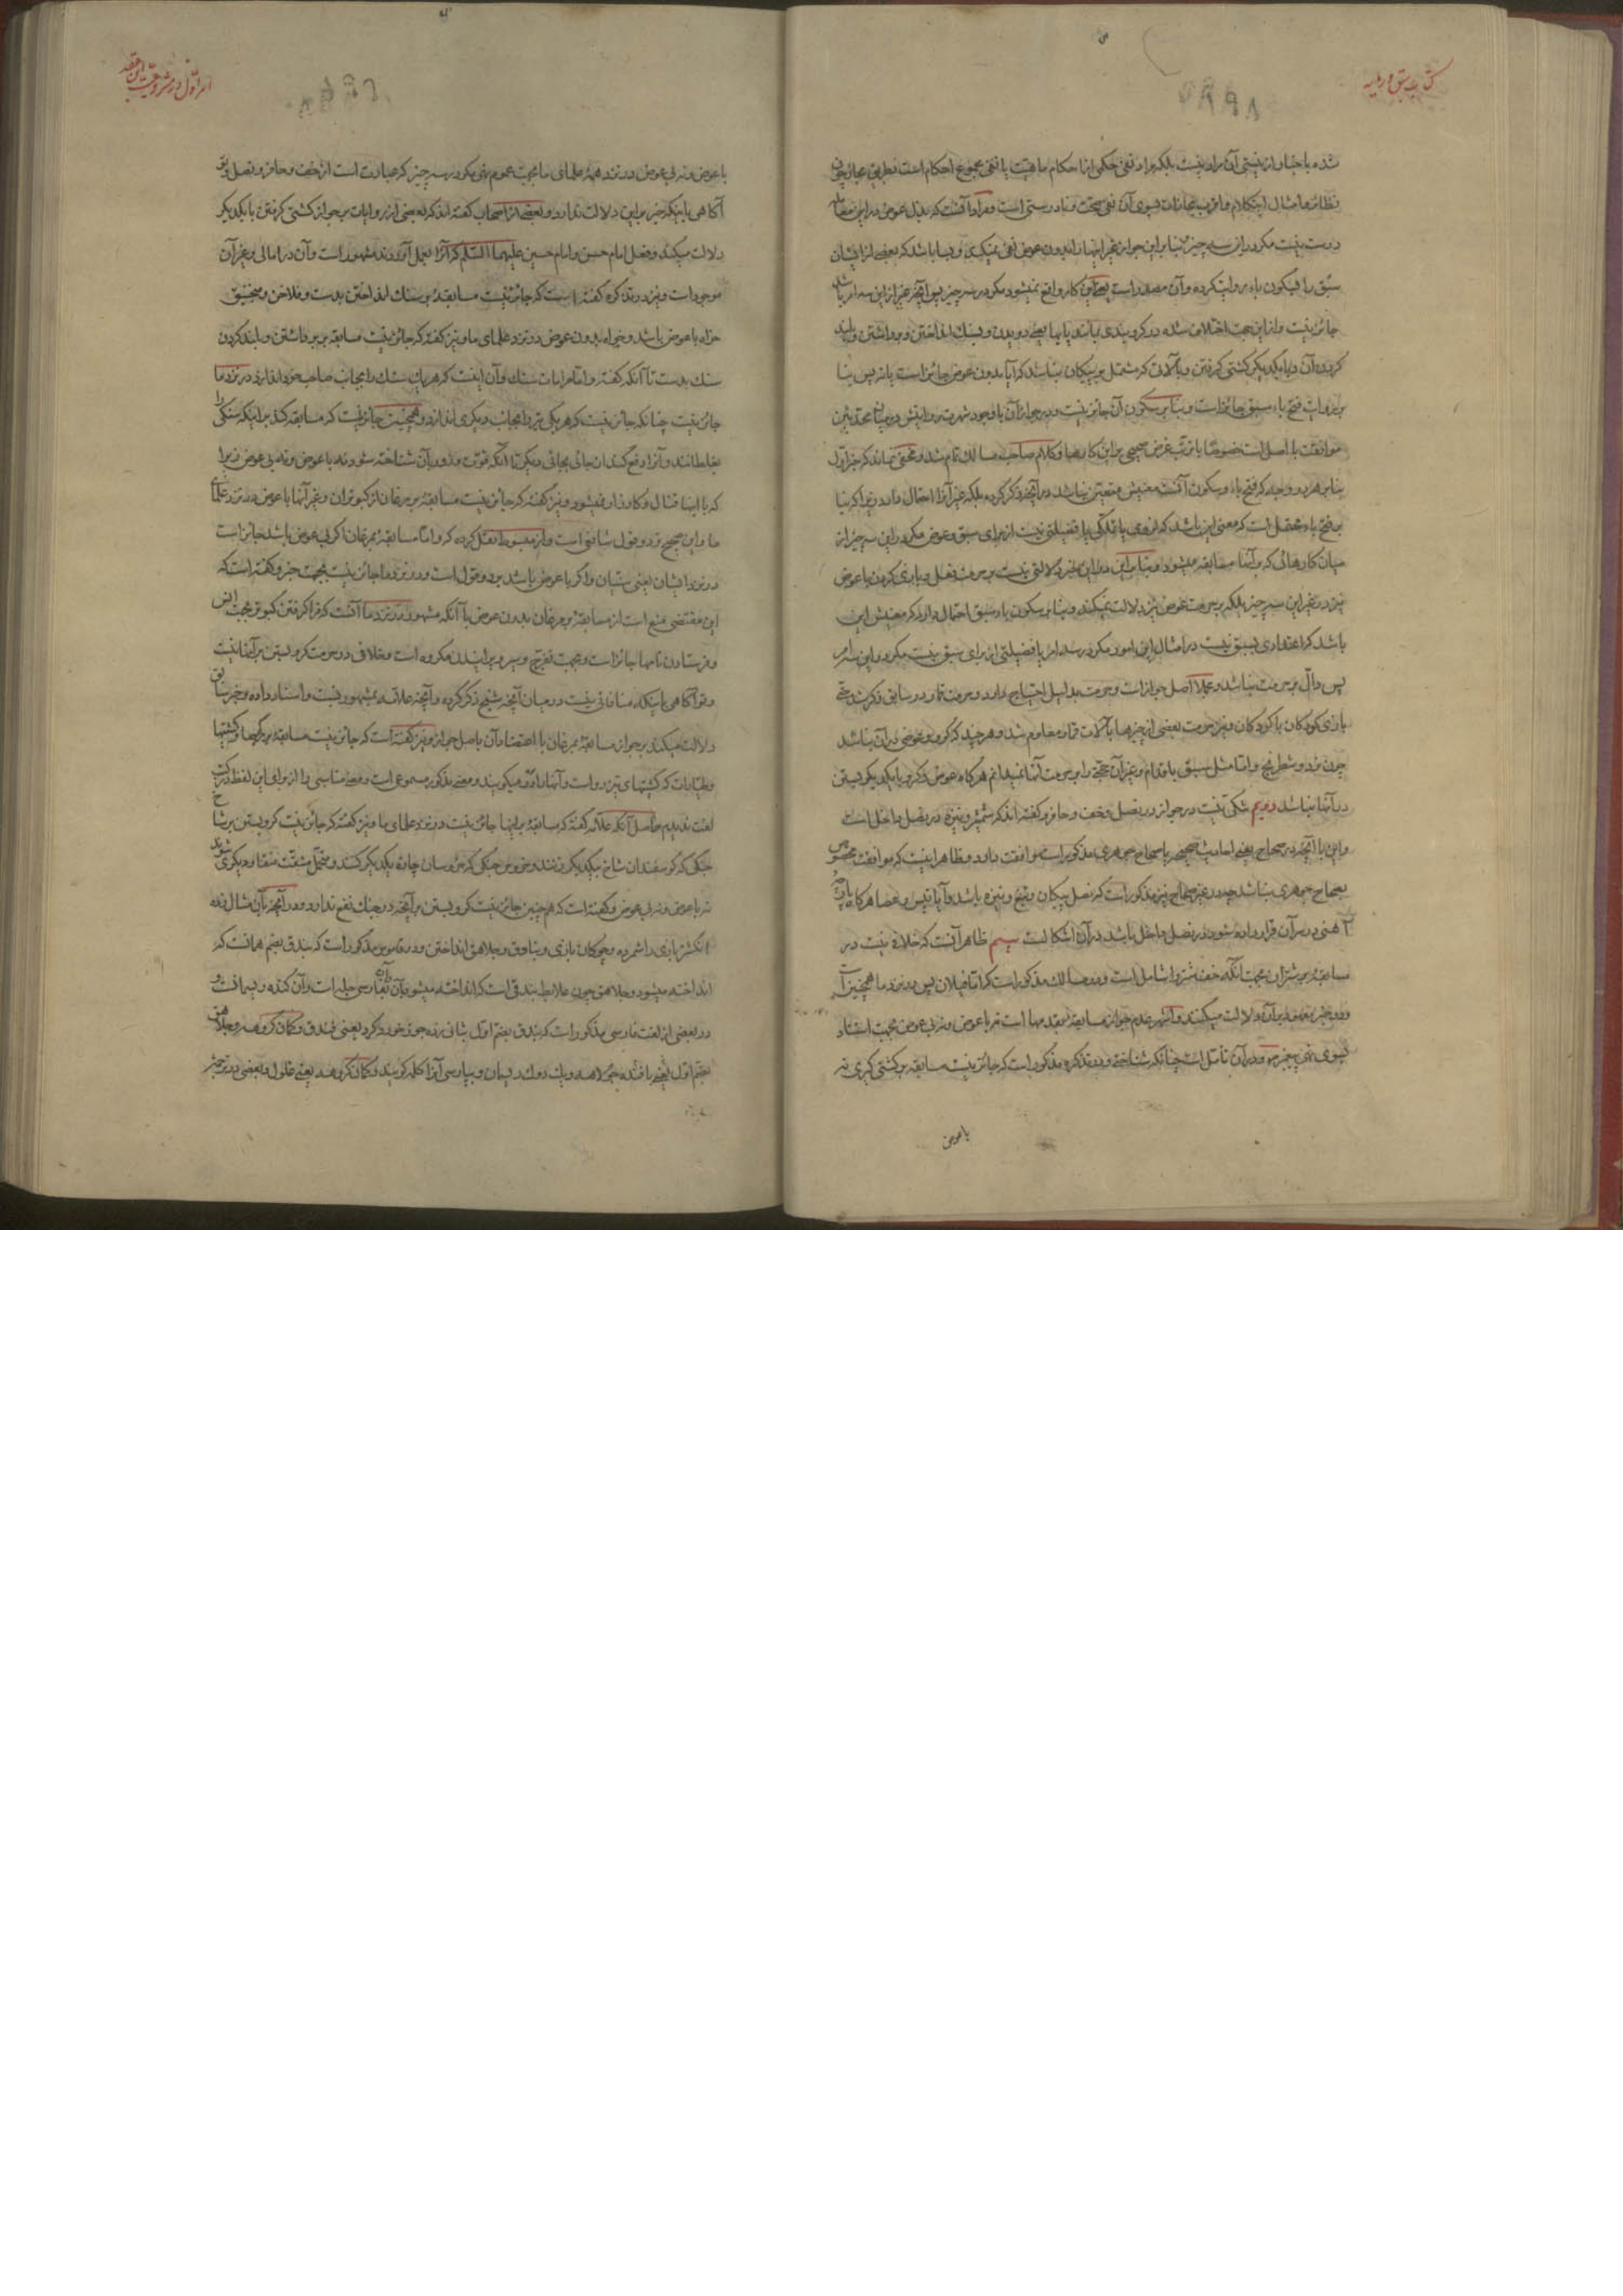 کتاب سبق و رمایه
شده با خبار از نیستی آن مراد نیست بلکه مراد نفی حکمی از احکام ماهیت یا نفی مجموع احکام است بطریق مجاز چون
نظائر و امثال این کلام و اقرب مجازات بسوی آن نفی صحت و نادرستی است و مراد آنست که بذل عوض در این معامله
درست نیست مگر در این سه چیز بنا براین جواز غیر اینها را بدون عوض نفی نمیکند و بسا باشد که بعضی از ایشان
سبق را بسکون باء روایت کرده و آن مصدر است یعنی این کار واقع نمیشود مگر در سه چیز پس آنچه غیر از این سه امر باشد
جائز نیست و از این جهت اختلاف شده در گروبندی بر اینها یعنی دویدن و سنگ انداختن و برداشتن و بلند
کردن آن و با یکدیگر کشتی گرفتن و بآلات که مشتمل بر پیکان نباشد که آیا بدون عوض جائز است یا نه پس بنا
بر روایت فتح باء سبق جائز است و بنا بر سکون آن جائز نیست و در جواز آن با وجود شهرت روایتش در میان محدثین
موافقت با اصل است خصوصا با ترتب غرض صحیحی بر این کارها و کلام صاحب مسالک تمام شد و مخفی نماند که خبر اول
بنا بر هر دو وجه که فتح باء و سکون آنست معنیش متعین نباشد در آنچه ذکر کرده بلکه غیر آنرا احتمال دارد زیرا که بنا
بر فتح باء محتمل است که معنی این باشد که لزومی یا تملکی یا فضیلتی نیست از برای سبق و عوض مگر در این سه چیز از
میان کارهائی که بر آنها مسابقه میشود و بنا براین در این خبر دلالتی نیست بر حرمت فعل و بازی کردن با عوض
نیز در غیر این سه چیز بلکه بر حرمت عوض نیز دلالت نمیکند و بنا بر سکون باء سبق احتمال دارد که معنیش این
باشد که اعتدادی بسبق نیست در امثال این امور مگر در سه امر یا فضیلتی از برای سبق نیست مگر در این سه امر
پس دال بر حرمت نباشد و عملا اصل جواز است و حرمت بدلیل احتیاج دارد و حرمت قمار در سابق ذکر شد حتی
بازی کودکان با گردکان و نیز حرمت بعضی از چیزها بآلات قمار معلوم شد و هر چند که گرو و عوضی در آن نباشد
چون نرد و شطرنج و اما مثل سبق باقدام و غیر آن حجتی را بر حرمت آنها نمیدانم هرگاه عوض و گرو با یکدیگر بستن
در آنها نباشد دویم شکی نیست در جواز در نصل و خف و حافر و گفته‌اند که شمشیر و نیزه در نصل داخل است
و این با آنچه در صحاح جوهری مذکور است موافقت دارد و ظاهر اینست که موافقت مخصوص
بصحاح جوهری نباشد چه در غیر صحاح نیز مذکور است که نصل پیکان و تیغ و نیزه باشد و آیا دبوس و عصا هرگاه پارچه
آهنی در سر آن قرار داده شود در نصل داخل باشد در آن اشکالست سیم ظاهر آنست که خلاف نیست در
مسابقه بر شتران بجهت آنکه خف شتر را شامل است و در مسالک مذکور است که اما فیلان پس در نزد ما همچنین است
و دو خبر متقدم بر آن دلالت میکنند و اشهر عدم جواز مسابقه بقدمها است نه با عوض و نه بی عوض بجهت استناد
بسوی نهی پیغمبر ص و در آن تامل است چنانکه شناختی و در تذکره مذکور است که جائز نیست مسابقه بر کشتی گیری نه
با عوض
امر اول در مشروعیت این عقد
با عوض و نه بی عوض در نزد همه علمای ما بجهت عموم نهی مگر در سه چیز که عبارت است از خف و حافر و نصل و تو
آگاهی باینکه خبر براین دلالت ندارد و بعضی از اصحاب گفته‌اند که بعضی از روایات بر جواز کشتی گرفتن با یکدیگر
دلالت میکند و فعل امام حسن و امام حسین علیهما السلام که آنرا بعمل آوردند مشهور است و آن در امالی و غیر آن
موجود است و نیز در تذکره گفته است که جائز نیست مسابقه بر سنگ انداختن بدست و فلاخن و منجنیق
خواه با عوض باشد و خواه بدون عوض در نزد علمای ما و نیز گفته که جائز نیست مسابقه بر برداشتن و بلند کردن
سنگ بدست تا آنکه گفته و اما مرامات سنگ و آن اینست که هر یک سنگ را بجانب صاحب خود اندازد در نزد ما
جائز نیست چنانکه جائز نیست که هر یکی تیر را بجانب دیگری اندازد و همچنین جائز نیست که مسابقه کند بر اینکه سنگی را
بغلطانند و آنرا دفع کند از جائی بجائی دیگر تا آنکه قوت و زور بآن شناخته شود نه با عوض و نه بی عوض زیرا
که با اینها قتال و کارزار نمیشود و نیز گفته که جائز نیست مسابقه بر مرغان از کبوتران و غیر آنها با عوض در نزد علمای
ما و این صحیح‌تر دو قول شافعی است و از مبسوط نقل کرده که و اما مسابقه بمرغان اگر بی عوض باشد جائز است
در نزد ایشان یعنی سنیان و اگر با عوض باشد بر دو قول است و در نزد ما جائز نیست بجهت خبر و گفته است که
این مقتضی منع است از مسابقه بر مرغان بدون عوض با آنکه مشهور در نزد ما آنست که فرا گرفتن کبوتر بجهت انس
و فرستادن نامها جائز است و بجهت تفرج و پرانیدن مکروه است و خلافی در حرمت گرو بستن بر آنها نیست
و تو آگاهی باینکه منافاتی نیست در میان آنچه شیخ ذکر کرده و آنچه علامه بمشهور نسبت و اسناد داده و خبر سابق
دلالت میکند بر جواز مسابقه بمرغان با اعتضاد آن باصل جواز و نیز گفته است که جائز نیست مسابقه بر کشتیها
و طیارات که کشتیهای تیزرو است
لغت ندیدم حاصل آنکه علامه گفته که مسابقه بر اینها جائز نیست در نزد علمای ما و نیز گفته که جائز نیست گرو بستن بر شاخ
جنگی که گوسفندان شاخ بیکدیگر زنند و خروس جنگی
نه با عوض و نه بی عوض و گفته است که همچنین جائز نیست گرو بستن بر آنچه در جنگ نفع ندارد و در آنچه بآن مثال زده
انگشتر بازی را شمرده و چوگان بازی و بنادق و جلاهق انداختن و در قاموس مذکور است که بندق بضم همانست که
انداخته میشود و جلاهق چون علابط بندقی است که انداخته میشود
در بعضی از لغت فارسی مذکور است که بندق بضم اول و ثانی